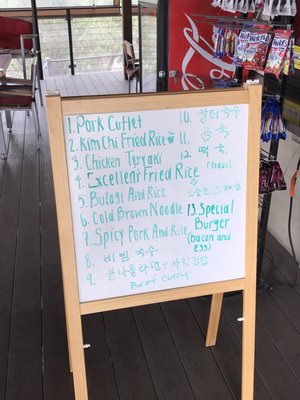 1. Pork Cutlet
2. Kim Chi Fried Rice
3. Chicken Teriyaki
4. Excellent Fried Rice
5. Bulogi And Rice
6. Cold Brown Noodle
7. Spicy Pork And Rice
8. 비빔 국수
9. 콩나물라면 + 사각김밥
Beef Curry
10. 잔치 국수
11. 콩국
12. 떡국
13. Special
Burger
(bacon and
egg)